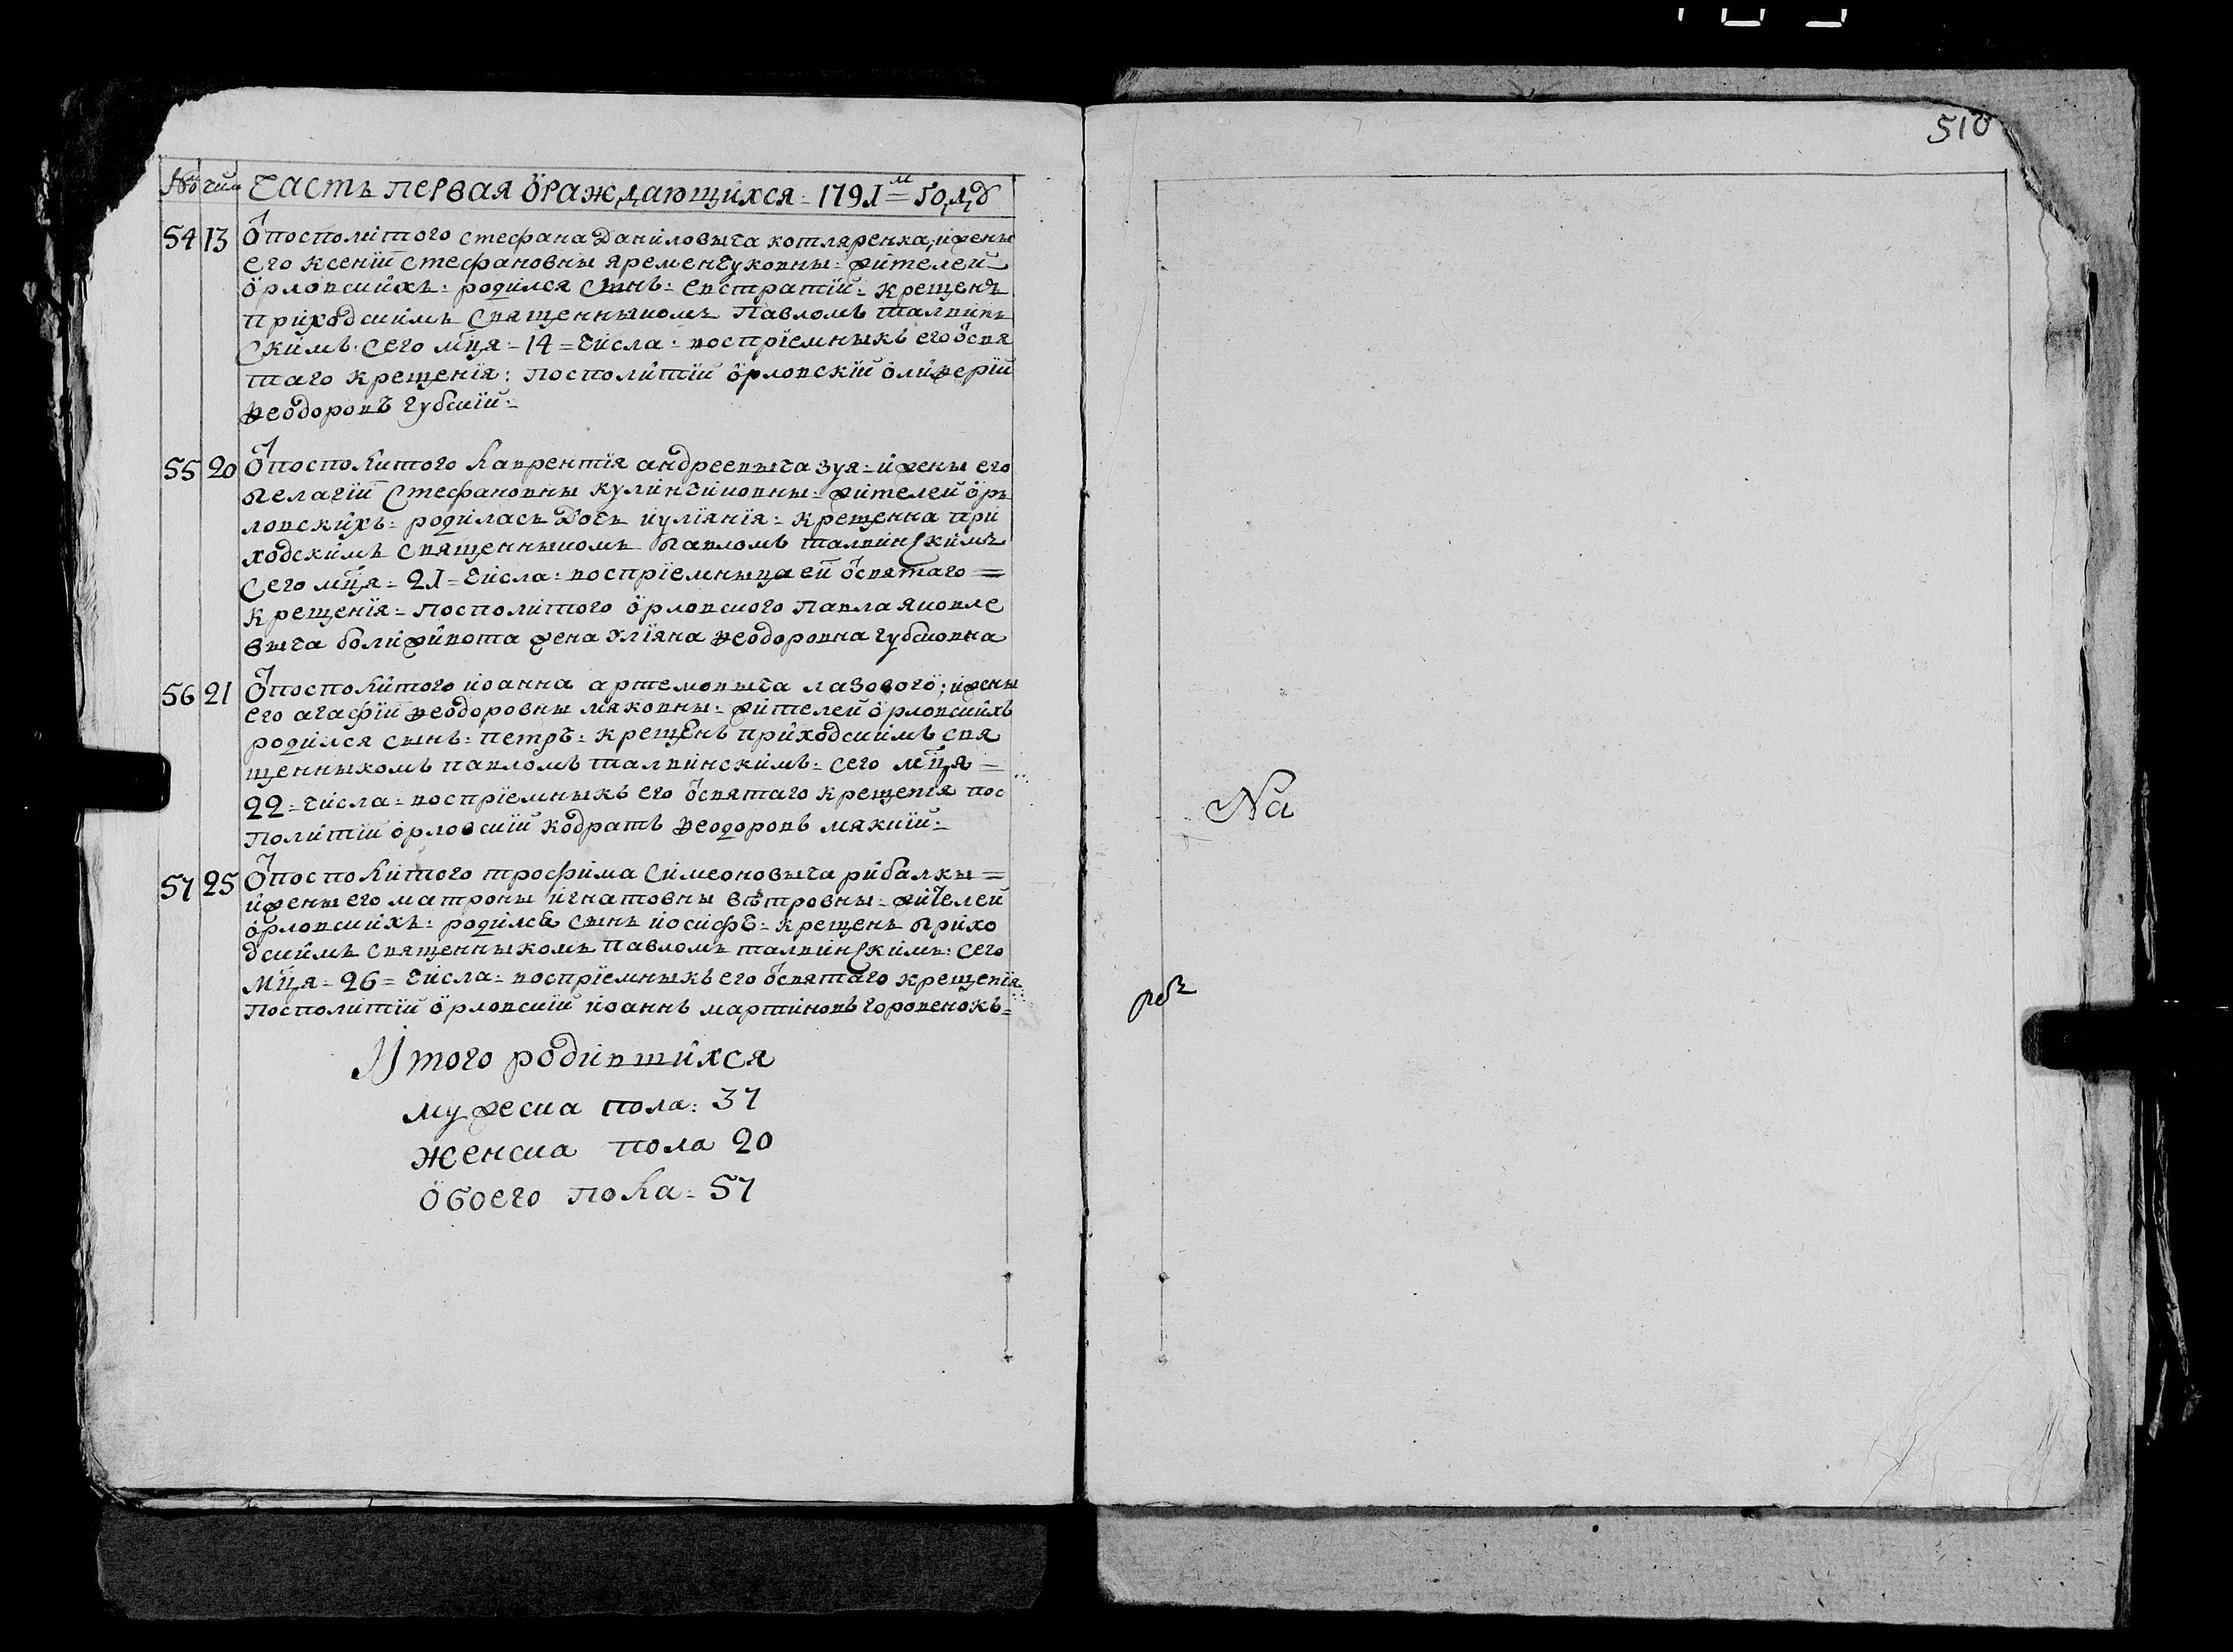 № чис: Часть первая ѡраждающихся = 1791м году
54 13 Ѿ посполитого стефана Даниловыча котляренка, и жены
его ксении стефановны яременчуковны: жителей
ѡрловскихъ: родился сынъ: евстратий: крещенъ
приходскимъ священныкомъ Павломъ талвин
скимъ. сего мця = 14 = числа: воспрїемныкъ его ѿ свя
таго крещенїя: посполитїй ѡрловскїй ѡлиферїй
Феодоровъ губскїй:
55 20 Ѿ посполитого лаврентїя андреевыча зуя = и жены его
пелагїи стефановны кулинчиковны: жителей ѡр
ловскихъ: родилась дочь иулїянїя: крещенна при
ходскимъ священныкомъ павломъ талвинскимъ
сего мця = 21 = числа: воспрїемныца ей ѿ святаго =
крещенїя = посполитого ѡрловского павла яковле
выча болиживота жена улїяна Феодоровна губсковна
56 21 Ѿ посполитого иоанна артемовыча лазового; и жены
его агафїи Феодоровны мяковны: жителей ѡрловскихъ
родился сынъ: петръ: крещенъ приходскимъ свя
щенныкомъ павломъ талвинскимъ: сего мця =
22 = числа = воспрїемныкъ его ѿ святаго крещенїя пос
политїй ѡрловскїй кодратъ Феодоровъ мяккїй:
57 25 Ѿ посполитого трофима симеоновыча рибалкы =
и жены его матроны игнатовны вѣтровны: жителей
ѡрловскихъ: родился сынъ иосифъ: крещенъ прихо
дскимъ священныкомъ павломъ талвинскимъ: сего
мця = 26 = числа: воспрїемныкъ его ѿ святаго крещенїя
посполитїй ѡрловскїй иоаннъ мартиновъ горовенокъ =
Итого родившихся
мужеска пола: 37
женска пола 20
ѡбоего пола: 57
510
На